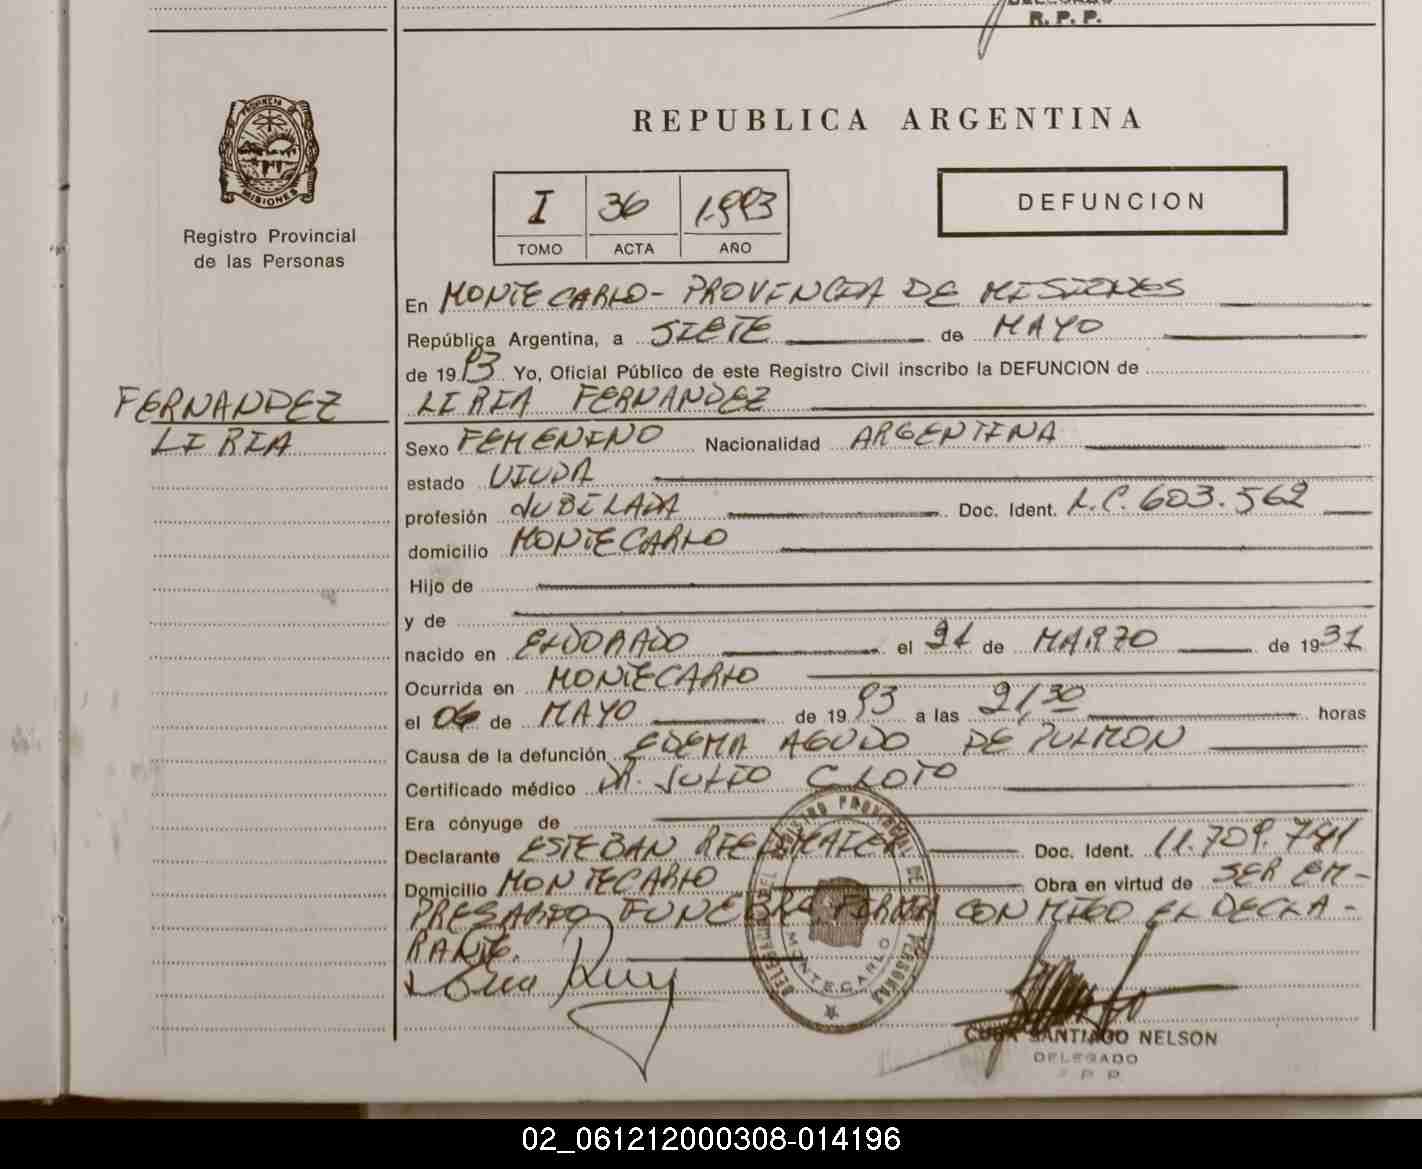 R. P. P.
PROVINCIA DE
MISIONES
Registro Provincial
de las Personas
REPUBLICA ARGENTINA
I 36 1.993
TOMO ACTA AÑO
DEFUNCION
En MONTECARLO - PROVINCIA DE MISIONES
República Argentina, a SIETE de MAYO
de 1993 Yo, Oficial Público de este Registro Civil inscribo la DEFUNCION de
FERNANDEZ
LIRIA
LIRIA FERNANDEZ
Sexo FEMENINO Nacionalidad ARGENTINA
estado VIUDA
profesión JUBILADA Doc. Ident. L.C. 603.562
domicilio MONTECARLO
Hijo de
y de
nacido en ELDORADO el 21 de MARZO de 1931
Ocurrida en MONTECARLO
el 06 de MAYO de 1993 a las 21,30 horas
Causa de la defunción EDEMA AGUDO DE PULMON
Certificado médico DR. JULIO C LOTO
Era cónyuge de
Declarante ESTEBAN Doc. Ident. 11.709.741
Domicilio MONTECARLO Obra en virtud de SER EM-
PRESARIO FUNEBRE FIRMA CONMIGO EL DECLA-
RANTE.
DELEGACION DEL REGISTRO PROVINCIAL DE PERSONAS
MONTECARLO
SANTIAGO NELSON
DELEGADO
R. P. P.
02_061212000308-014196